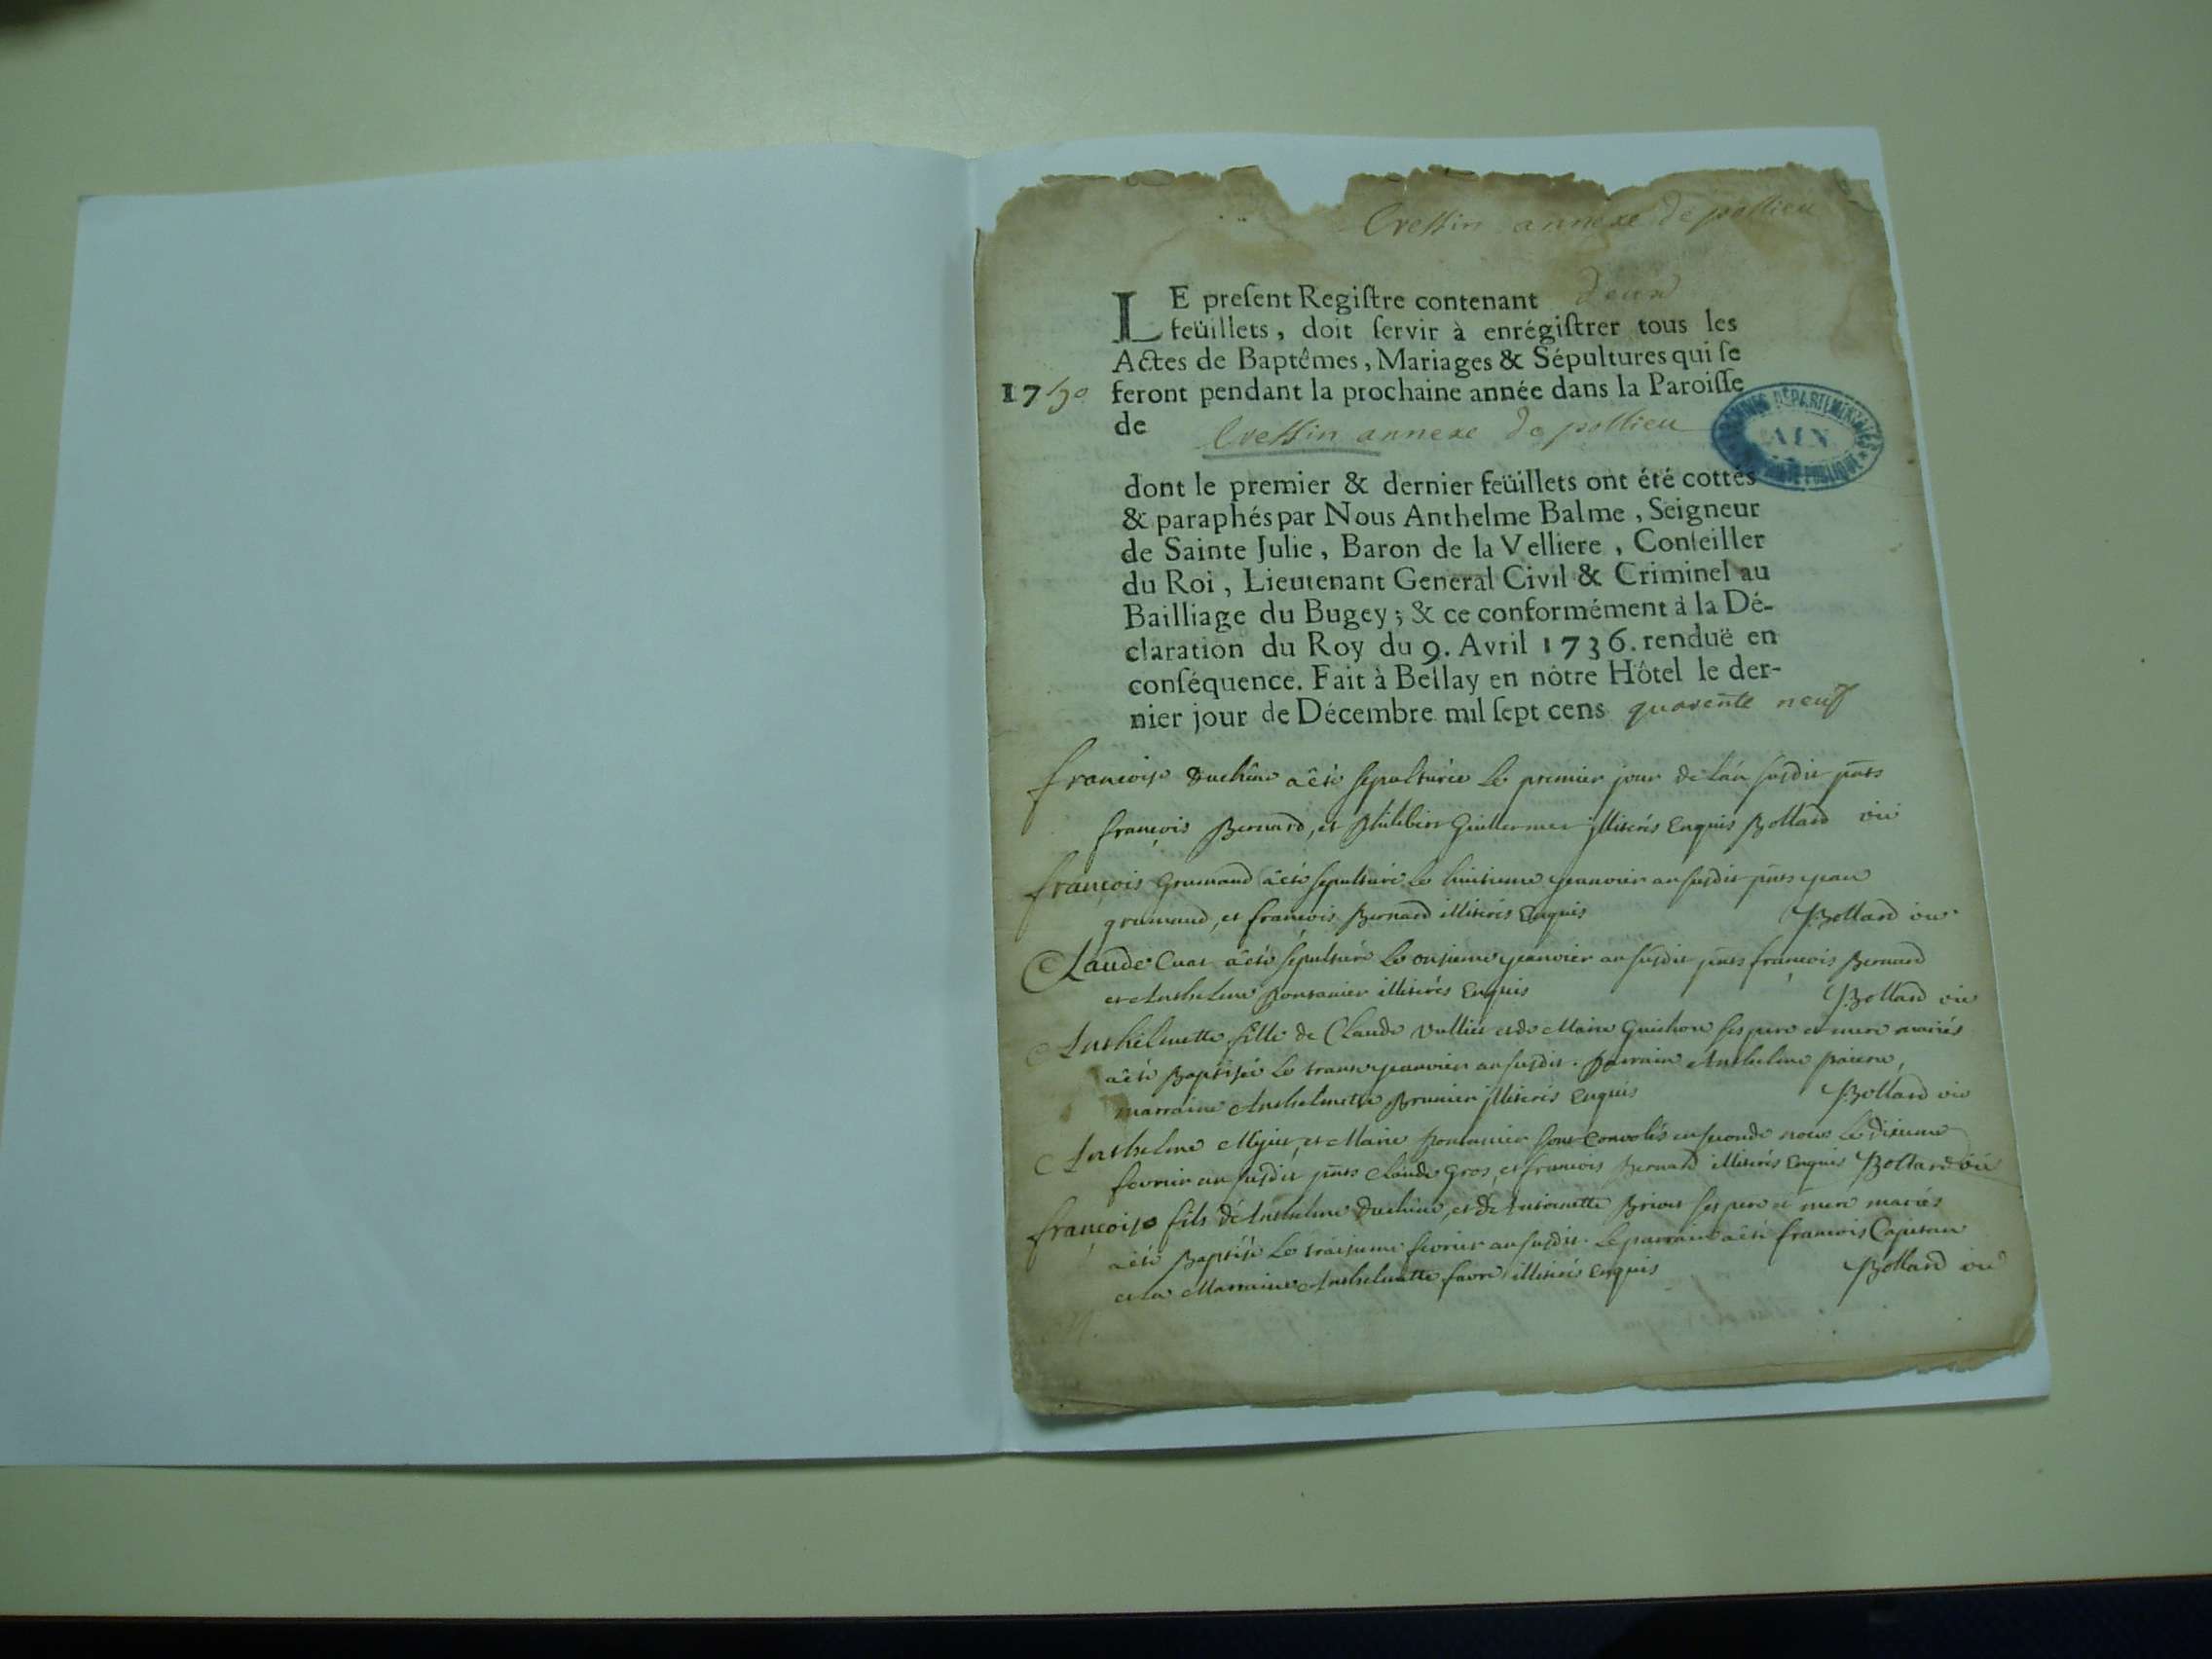 Cressin annexe de pollieu
LE preſent Regiſtre contenant deux
feüillets, doit ſervir à enrégiſtrer tous les
Actes de Baptêmes, Mariages & Sépultures qui ſe
1750 feront pendant la prochaine année dans la Paroiſſe
de Cressin annexe de pollieu
ARCHIVES DÉPARTEMENTALES
AIN
dont le premier & dernier feüillets ont été cottés
& paraphés par Nous Anthelme Balme, Seigneur
de Sainte Julie, Baron de la Velliere, Conſeiller
du Roi, Lieutenant General Civil & Criminel au
Bailliage du Bugey; & ce conformément à la Dé-
claration du Roy du 9. Avril 1736. renduë en
conſéquence. Fait à Bellay en nôtre Hôtel le der-
nier jour de Décembre mil ſept cens quarente neuf
françoise Duchêne a êté sepulturée le premier jour de l'an susdit pnts
françois Bernard, et Philibert Guillermet illiterés Enquis Bollard vic
françois grumaud a êté sepulturé le huitieme janvier an susdit pnts jean
grumaud, et françois Bernard illiterés Enquis Bollard vic
Claude Cuat a êté sepulturé le onsieme janvier an susdit pnts françois Bernard
et Anthelme illiterés Enquis Bollard vic
Anthelmette fille de Claude Vullier et de Marie Guichon ses pere et mere mariés
a êté Baptisée le janvier an susdit. Parrain Anthelme
marraine Anthelmette Brunier illiterés Enquis Bollard vic
Anthelme et Marie sont Convolés en seconde noces le dixieme
fevrier an susdit pnts Claude Gros, et françois Bernard illiterés Enquis Bollard vic
françois fils de Anthelme Duchêne, et de Antoinette ses pere et mere mariés
a êté Baptisé le traisieme fevrier an susdit. Le parrain a êté françois Capitan
et la Marraine Anthelmette favre illiterés Enquis Bollard vic